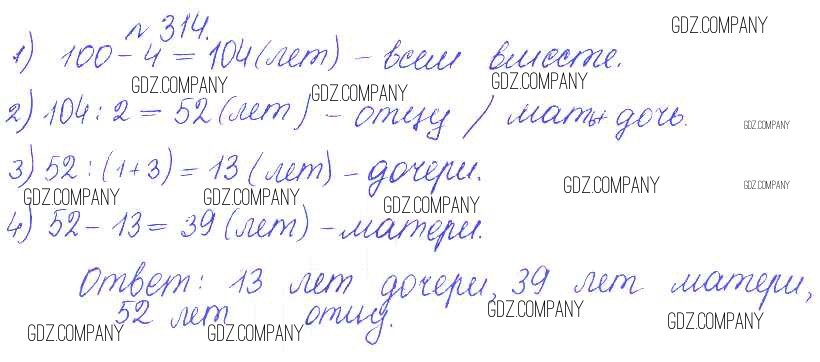 № 314.
GDZ.COMPANY
1) 100 - 4 = 104 (лет) - всем вместе.
GDZ.COMPANY GDZ.COMPANY GDZ.COMPANY
2) 104 : 2 = 52 (лет) - отцу / мать + дочь.
GDZ.COMPANY
3) 52 : (1+3) = 13 (лет) - дочери.
GDZ.COMPANY GDZ.COMPANY GDZ.COMPANY GDZ.COMPANY GDZ.COMPANY
4) 52 - 13 = 39 (лет) - матери.
Ответ: 13 лет дочери, 39 лет матери,
52 лет отцу.
GDZ.COMPANY GDZ.COMPANY GDZ.COMPANY GDZ.COMPANY